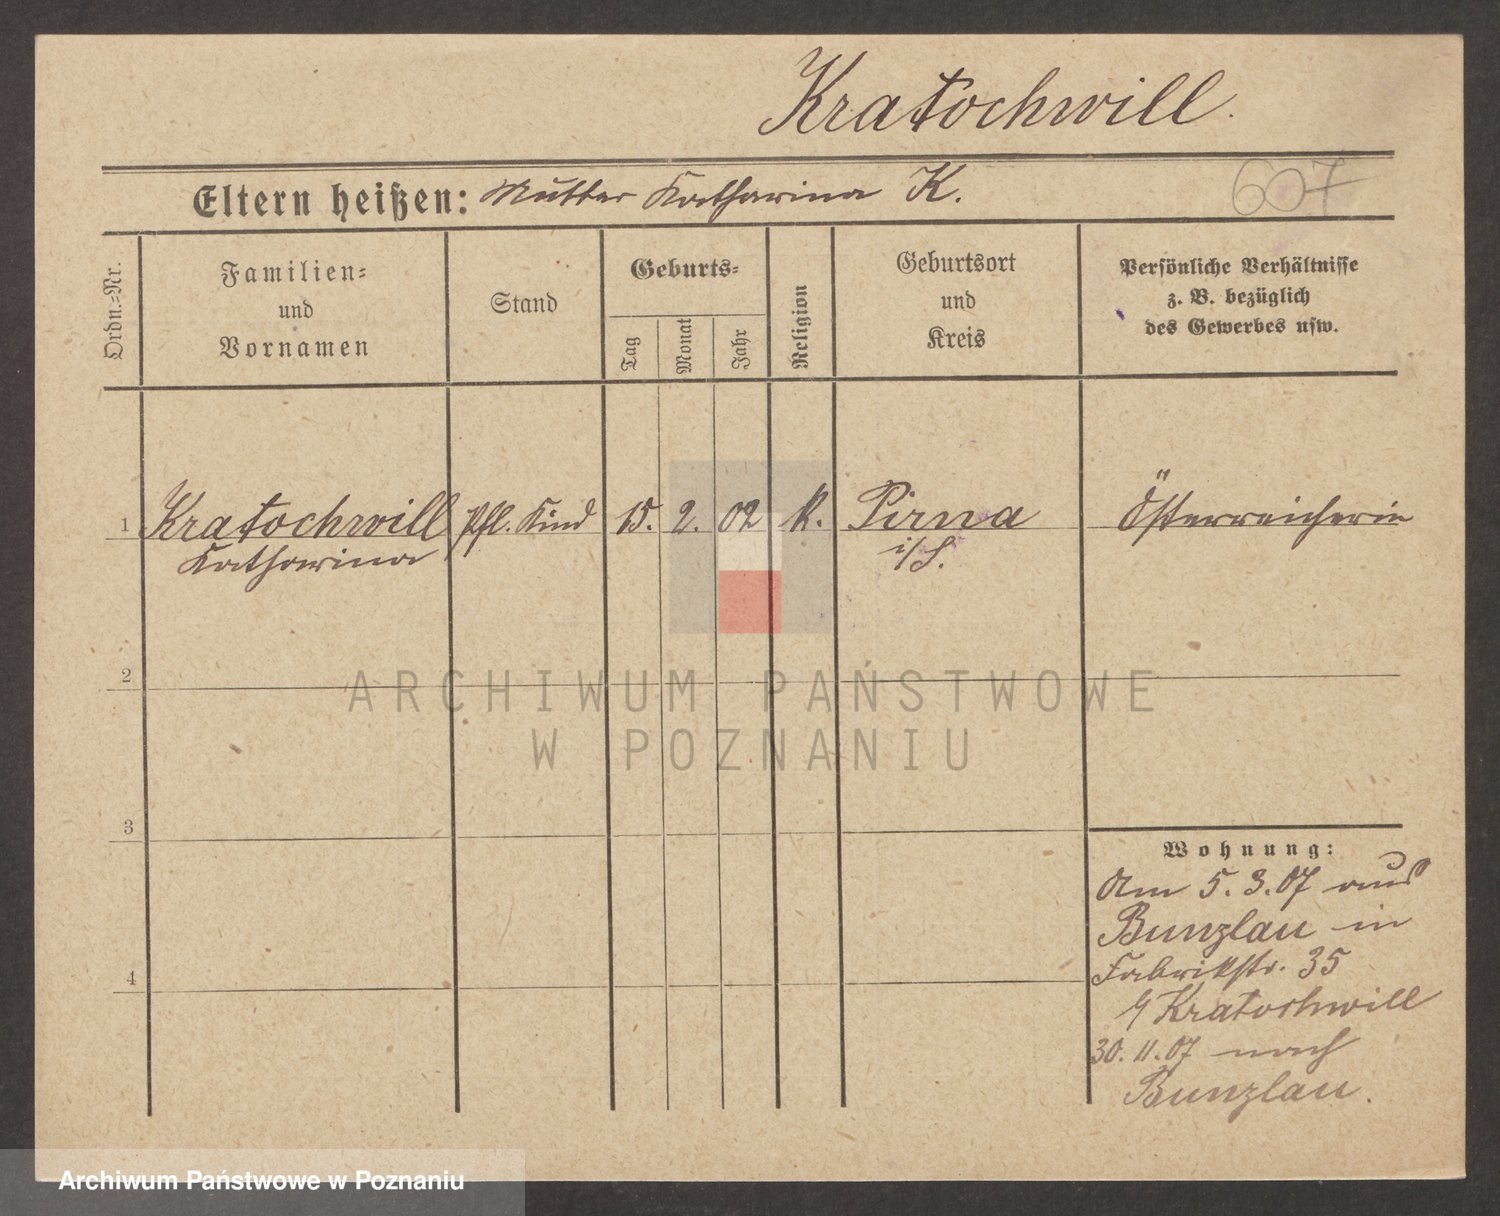 Kratochwill.
Eltern heißen: Mutter Katharina K.
607
Ordn.=Nr.
Familien=
und
Vornamen
Stand
Geburts=
Tag
Monat
Jahr
Religion
Geburtsort
und
Kreis
Persönliche Verhältnisse
z. B. bezüglich
des Gewerbes usw.
1 Kratochwill Pfl. Kind 15. 2. 02 K. Pirna Österreicherin
Katharina i/S.
2
3
4
Wohnung:
Am 5.3.07 aus
Bunzlau in
Fabrikstr. 35
Kratochwill
30.11.07 nach
Bunzlau.
ARCHIWUM PAŃSTWOWE
W POZNANIU
Archiwum Państwowe w Poznaniu